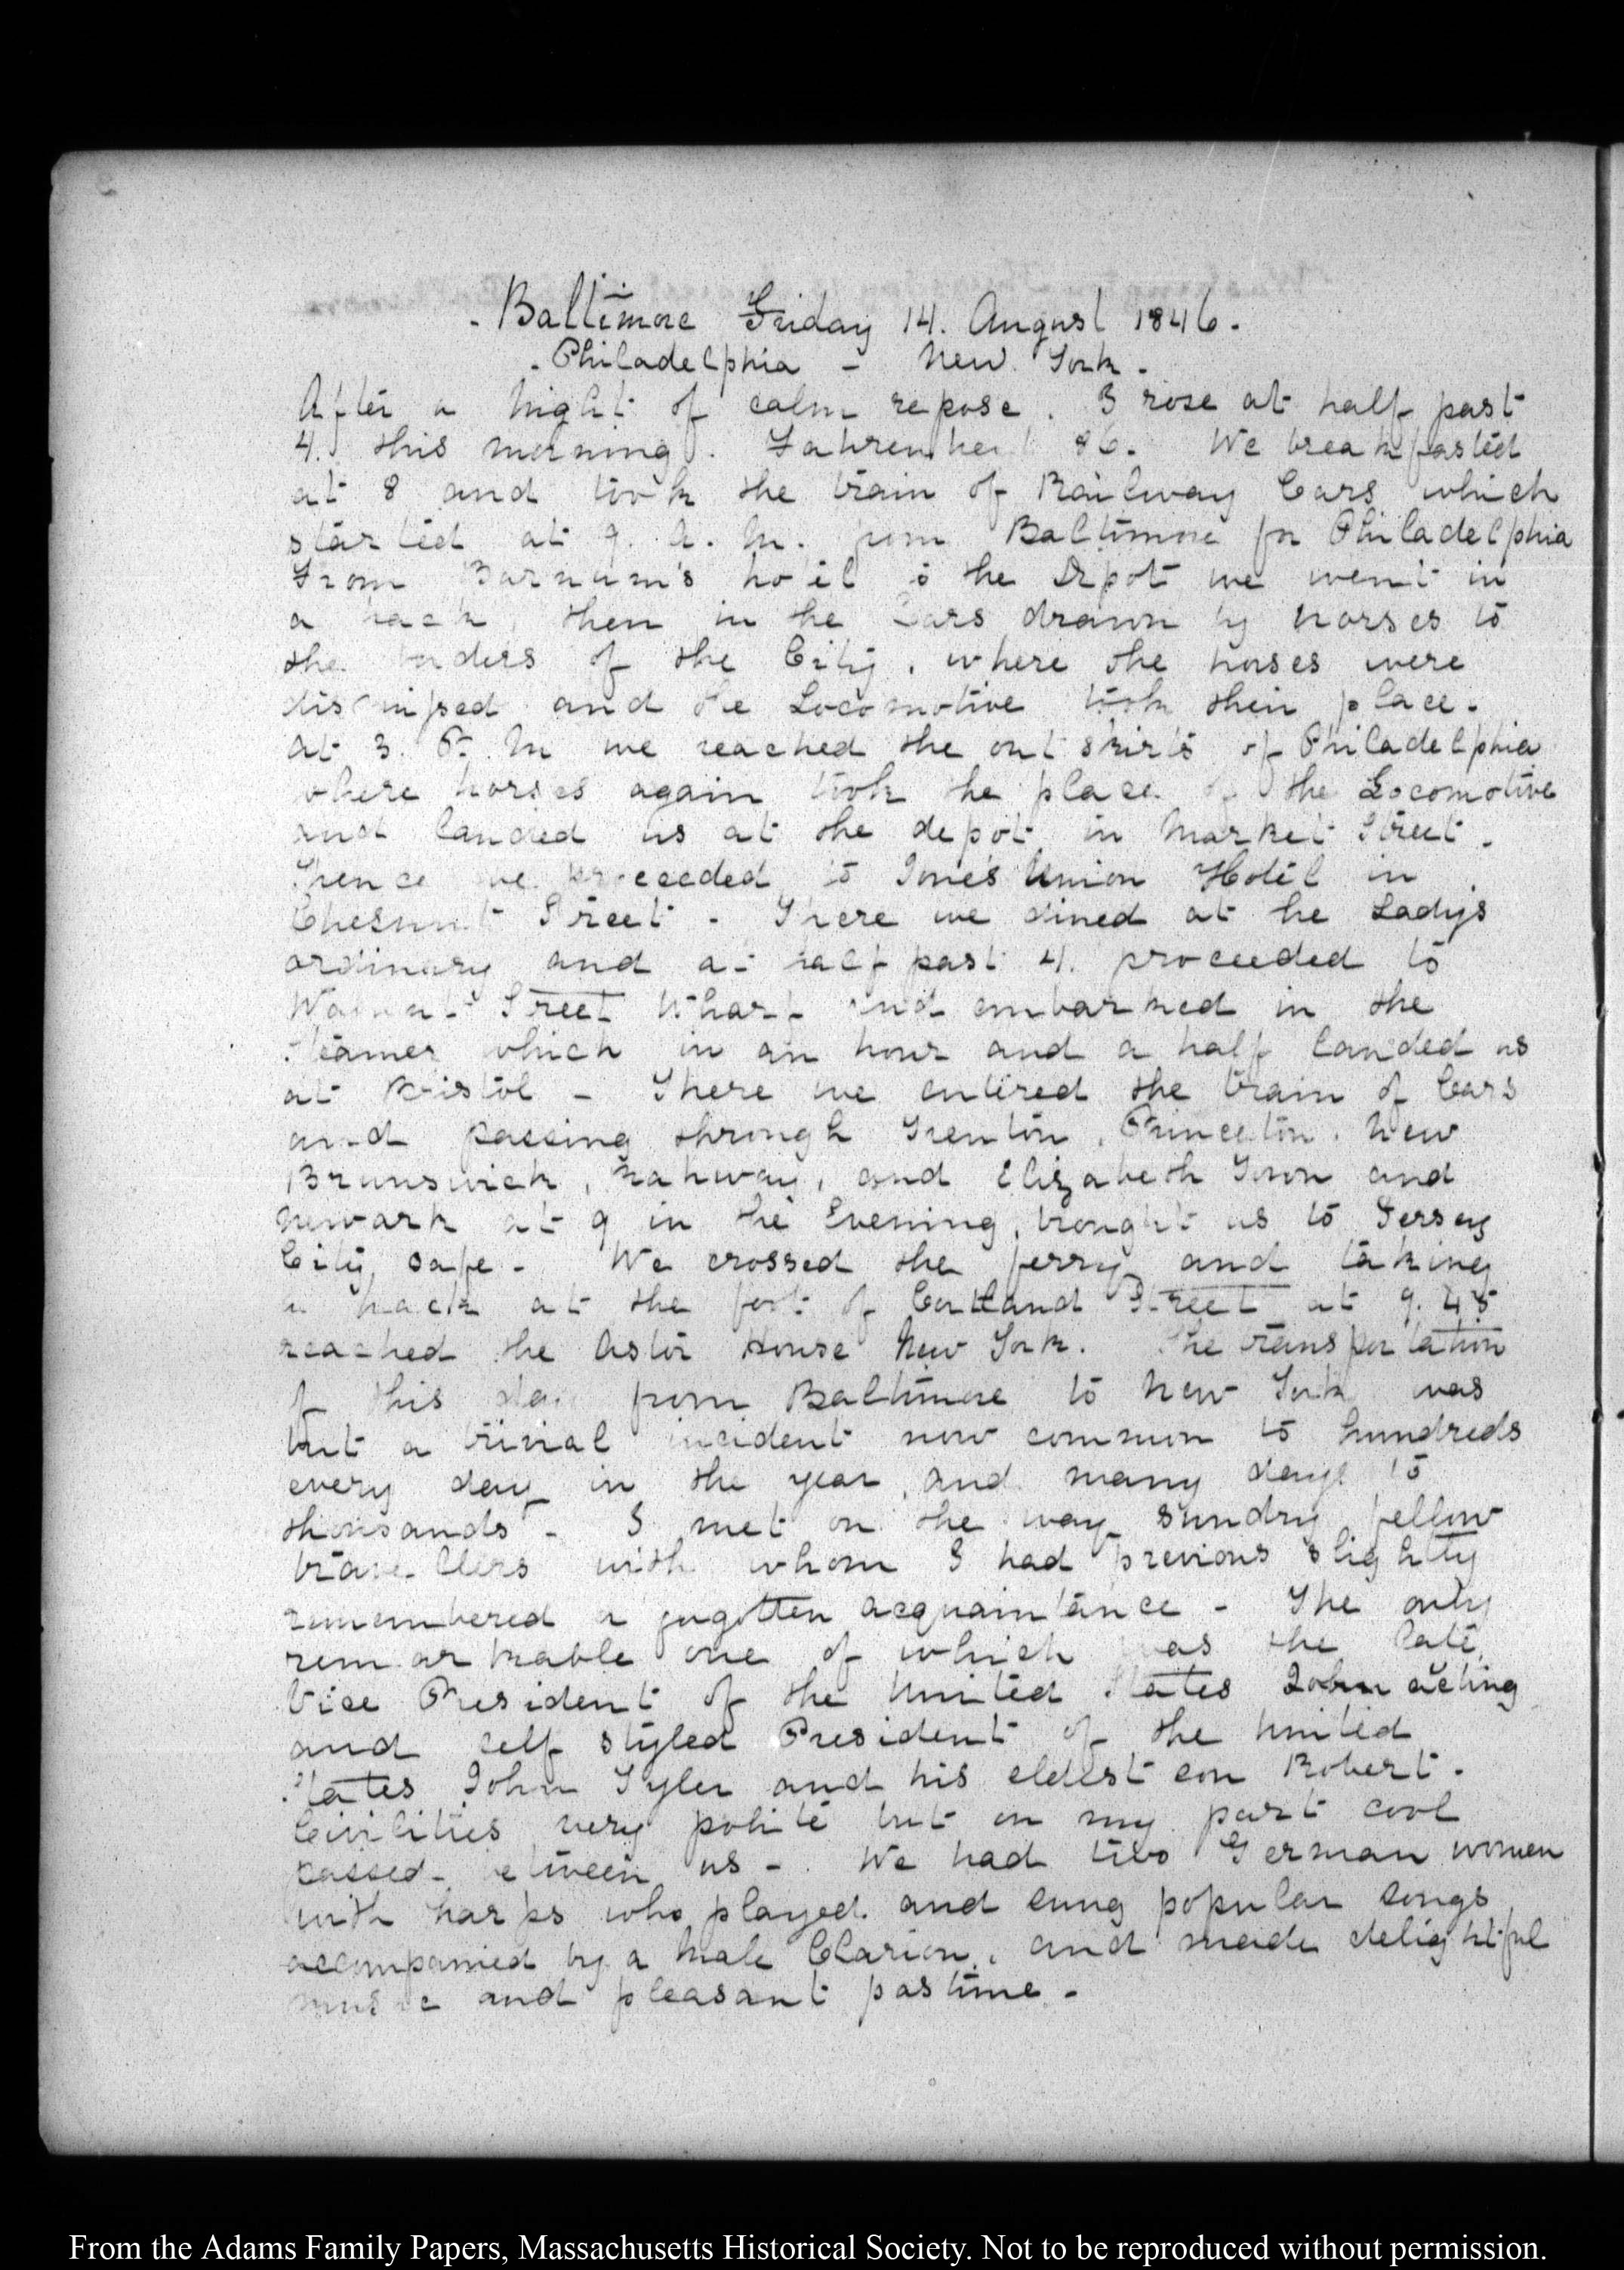 - Baltimore Friday 14. August 1846.
- Philadelphia - New York -
After a night of calm repose. I rose at half past
4. this morning. Fahrenheit 86. We breakfasted
at 8 and took the train of Railway Cars which
started at 9. A. M. from Baltimore for Philadelphia
From Barnum's hotel to the Depot we went in
a hack, then in the Cars drawn by horses to
the borders of the City, where the horses were
dismissed and the Locomotive took their place.
At 3. P. M we reached the outskirts of Philadelphia
where horses again took the place of the Locomotive
and landed us at the depot in Market Street.
Thence we proceeded to Jones's Union Hotel in
Chesnut Street - There we dined at the Ladys
ordinary and at half past 4. proceeded to
Walnut Street Wharf and embarked in the
Steamer which in an hour and a half landed us
at Bristol - There we entered the train of Cars
and passing through Trenton, Princeton, New
Brunswick, Rahway, and Elizabeth Town and
Newark at 9 in the Evening, brought us to Jersey
City safe - We crossed the ferry and taking
a hack at the foot of Cortland Street at 9. 45
reached the Astor House New York. The transportation
of this day from Baltimore to New York was
but a trivial incident now common to hundreds
every day in the year, and many days to
thousands - I met on the way sundry fellow
travellers with whom I had previous slightly
remembered or forgotten acquaintance - The only
remarkable one of which was the late
Vice President of the United States John acting
and self styled President of the United
States John Tyler and his eldest son Robert.
Civilities very polite but on my part cool
passed between us - We had two German women
with harps who played and sung popular songs
accompanied by a male Clarion, and made delightful
music and pleasant pastime -
From the Adams Family Papers, Massachusetts Historical Society. Not to be reproduced without permission.